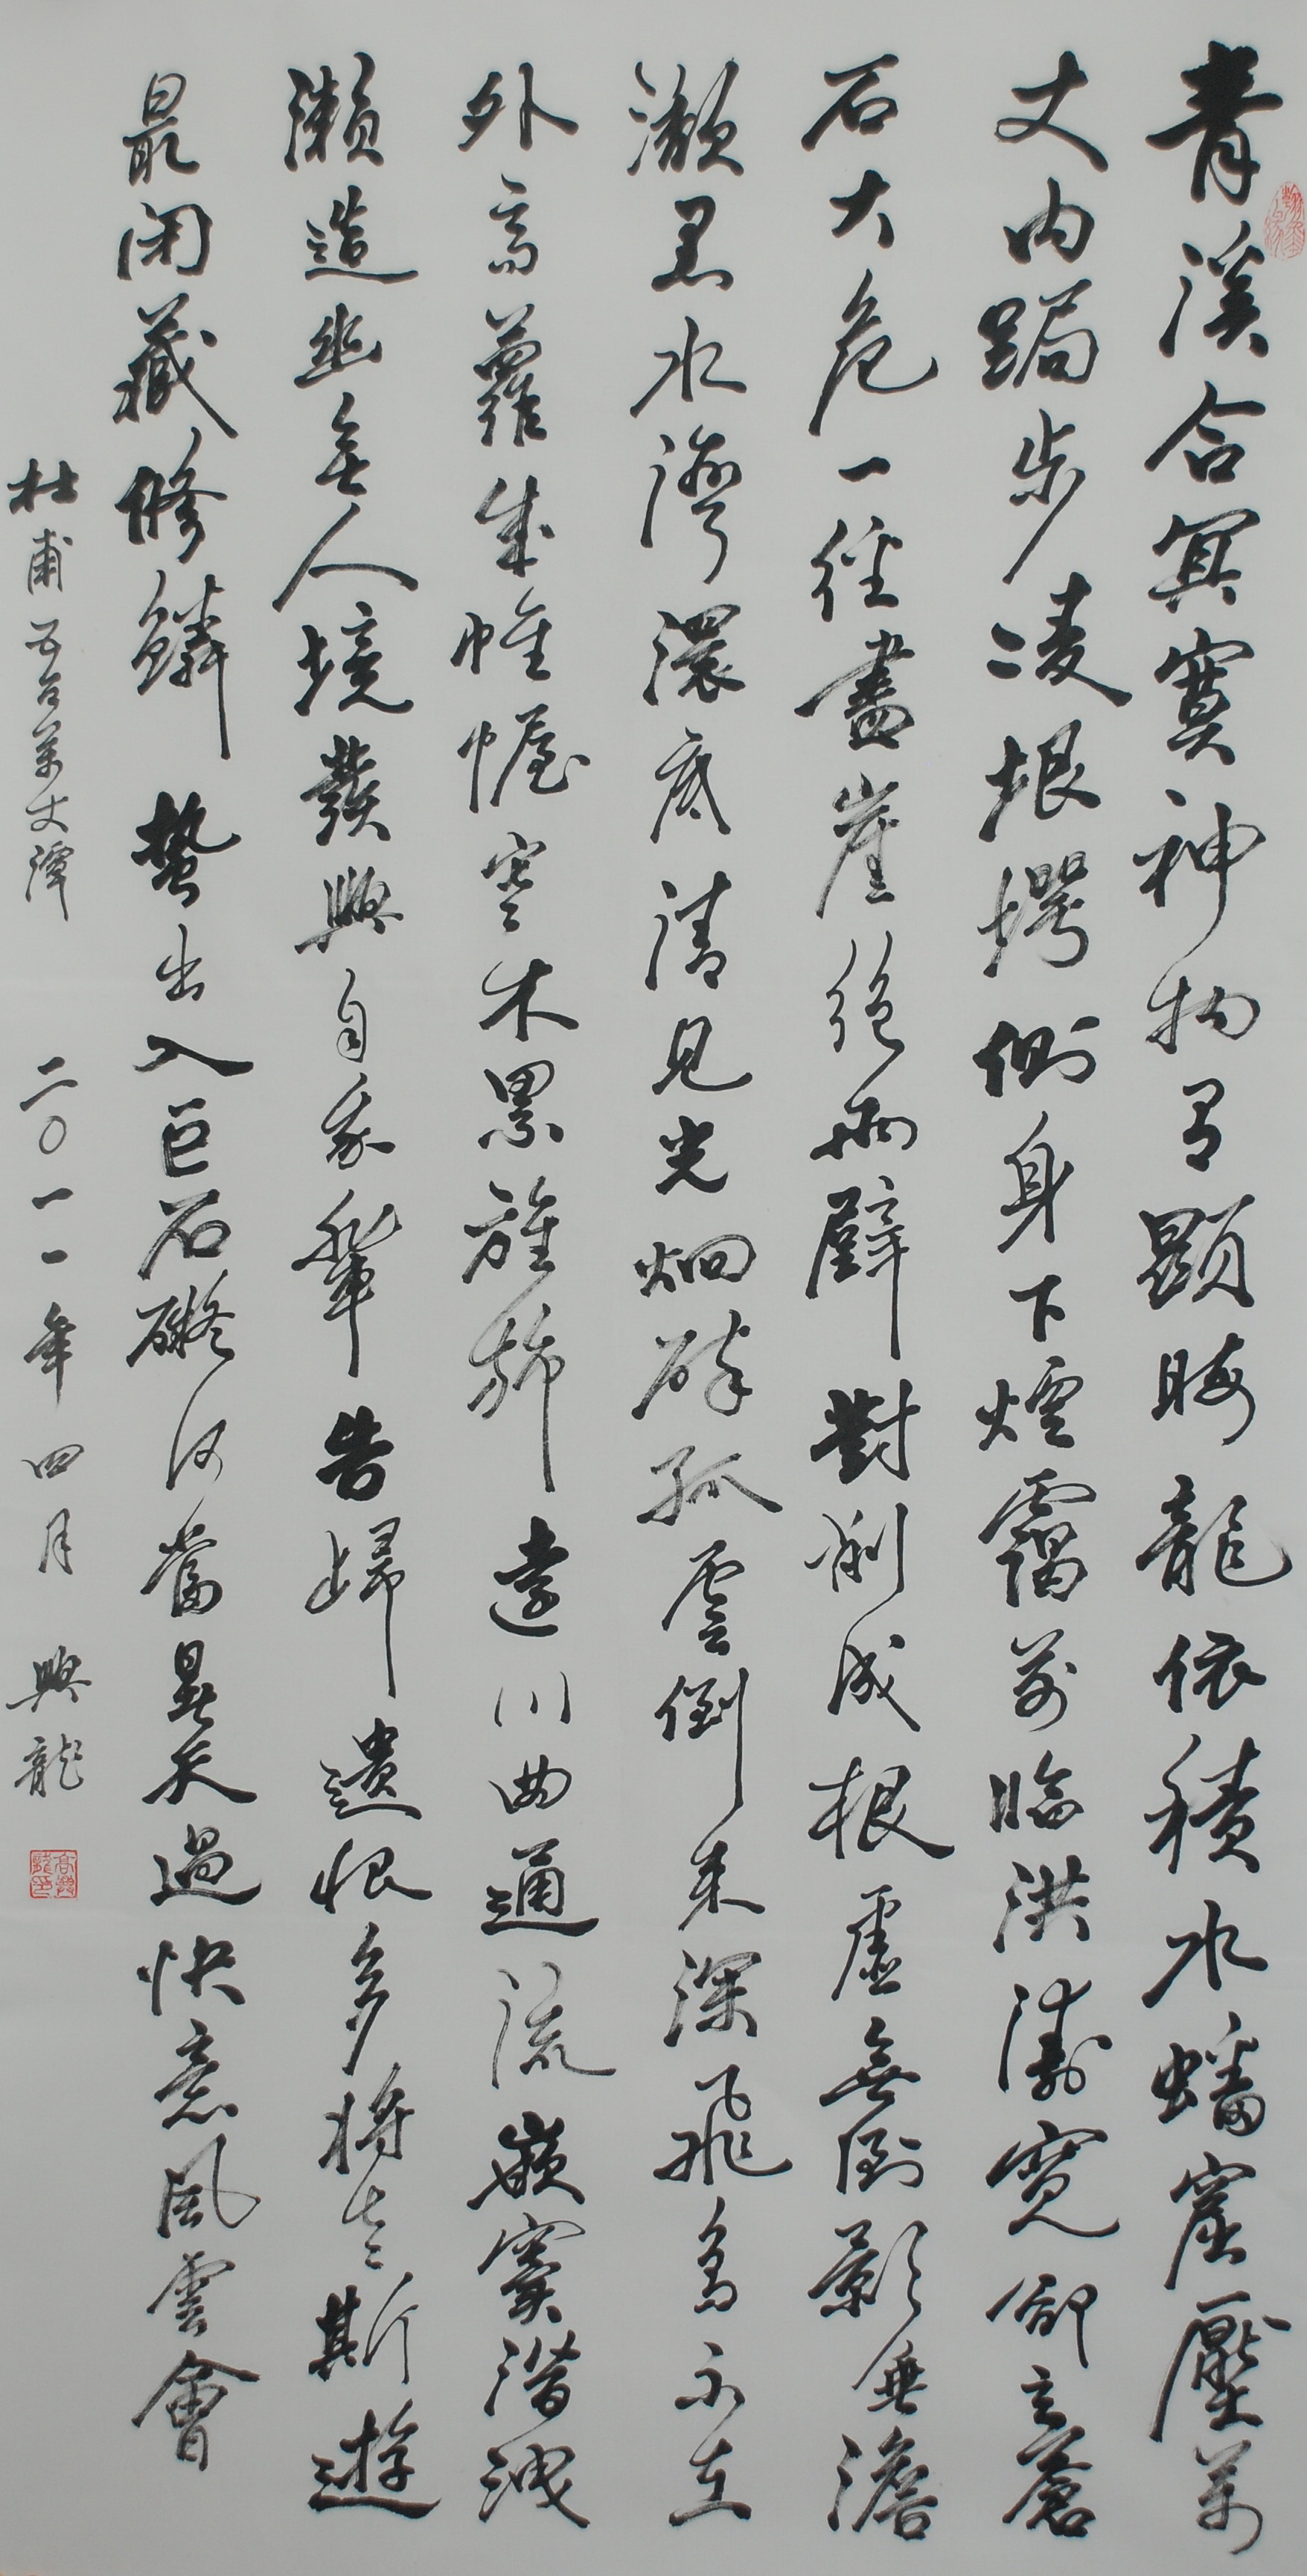 青溪合冥寞神物有顯晦龍依積水蟠窟壓萬
丈内跼步凌垠堮側身下煙靄前臨洪濤寬卻立蒼
石大危一徑盡崖絕兩壁對削成根虛無倒影垂澹
瀨黑水灣澴底清見光炯碎孤雲倒來深飛鳥不在
外高蘿成帷幄寒木累旌旆遠川曲通流嵌竇潛洩
瀨造幽無人境發興自我輩告歸遺恨多將老斯遊
最閉藏修鱗蟄出入巨石礙何當暑天過快意風雲會
杜甫 萬丈潭 二〇一一年四月 興龍